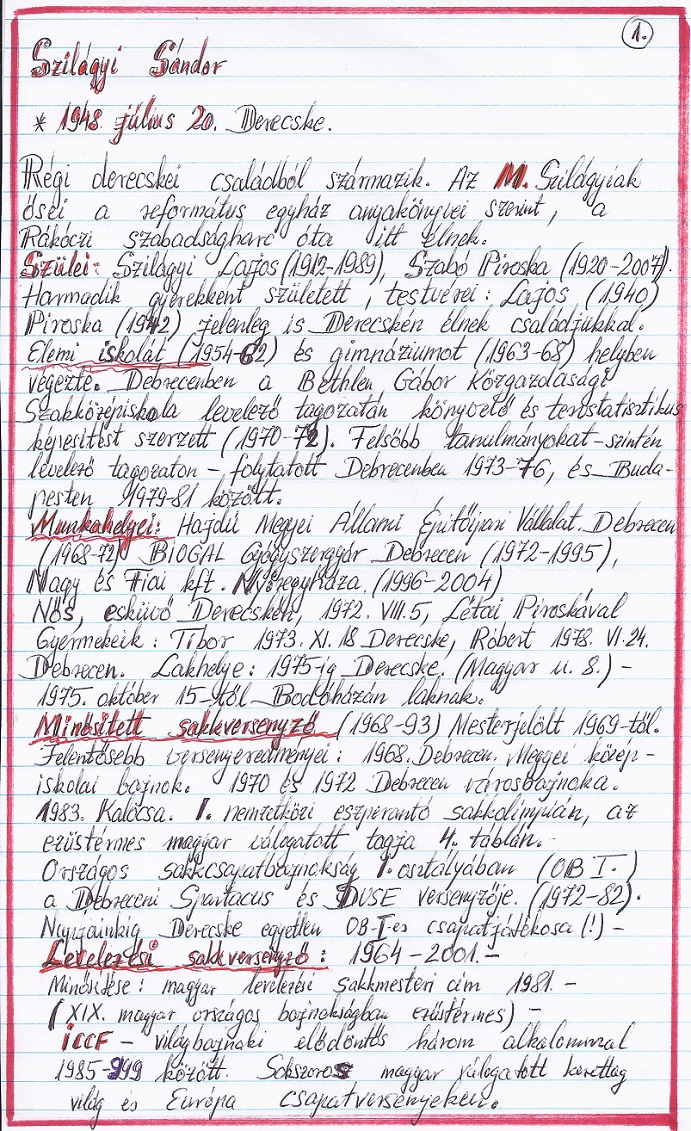 1.
Szilágyi Sándor
* 1948 július 20. Derecske.
Régi derecskei családból származik. Az M. Szilágyiak
ősei a református egyház anyakönyvei szerint, a
Rákóczi szabadságharc óta itt élnek.
Szülei: Szilágyi Lajos (1912-1989), Szabó Piroska (1920-2007).
Harmadik gyerekként született, testvérei: Lajos (1940)
Piroska (1942) jelenleg is Derecskén élnek családjukkal.
Elemi iskolát (1954-62) és gimnáziumot (1963-68) helyben
végezte. Debrecenben a Bethlen Gábor Közgazdasági
Szakközépiskola levelező tagozatán könyvelő és tervstatisztikus
képesítést szerzett (1970-72). Felsőbb tanulmányokat-szintén
levelező tagozaton - folytatott Debrecenben 1973-76, és Buda-
pesten 1979-81 között.
Munkahelyei: Hajdú Megyei Állami Építőipari Vállalat. Debrecen
(1968-72) BIOGAL Gyógyszergyár Debrecen (1972-1995),
Nagy és Fiai kft. Nyíregyháza. (1996-2004)
Nős, esküvő Derecskén, 1972. VIII.5, Létai Piroskával
Gyermekeik: Tibor 1973. XI. 18 Derecske, Róbert 1978. VI. 24.
Debrecen. Lakhelye: 1975-ig Derecske, (Magyar u. 8.) -
1975. október 15-től Bodóházán laknak.
Minősített sakkversenyző (1968-93) Mesterjelölt 1969-től.
Jelentősebb versenyeredményei: 1968. Debrecen. Megyei közép-
iskolai bajnok. 1970 és 1972 Debrecen városbajnoka.
1983. Kalocsa. I. nemzetközi eszperantó sakkolimpián, az
ezüstérmes magyar válogatott tagja 4. táblán.-
Országos sakkcsapatbajnokság I. osztályában (OB I.)
a Debreceni Spartacus és DUSE versenyzője. (1972-82).
Napjainkig Derecske egyetlen OB-I-es csapatjátékosa (!) -
Levelezési sakkversenyző: 1964-2001.-
Minősítése: magyar levelezési sakkmesteri cím 1981. -
(XIX. magyar országos bajnokságban ezüstérmes) -
ICCF - világbajnoki elődöntős három alkalommal
1985-999 között. Sokszoros magyar válogatott kerettag
világ és Európa csapatversenyeken.